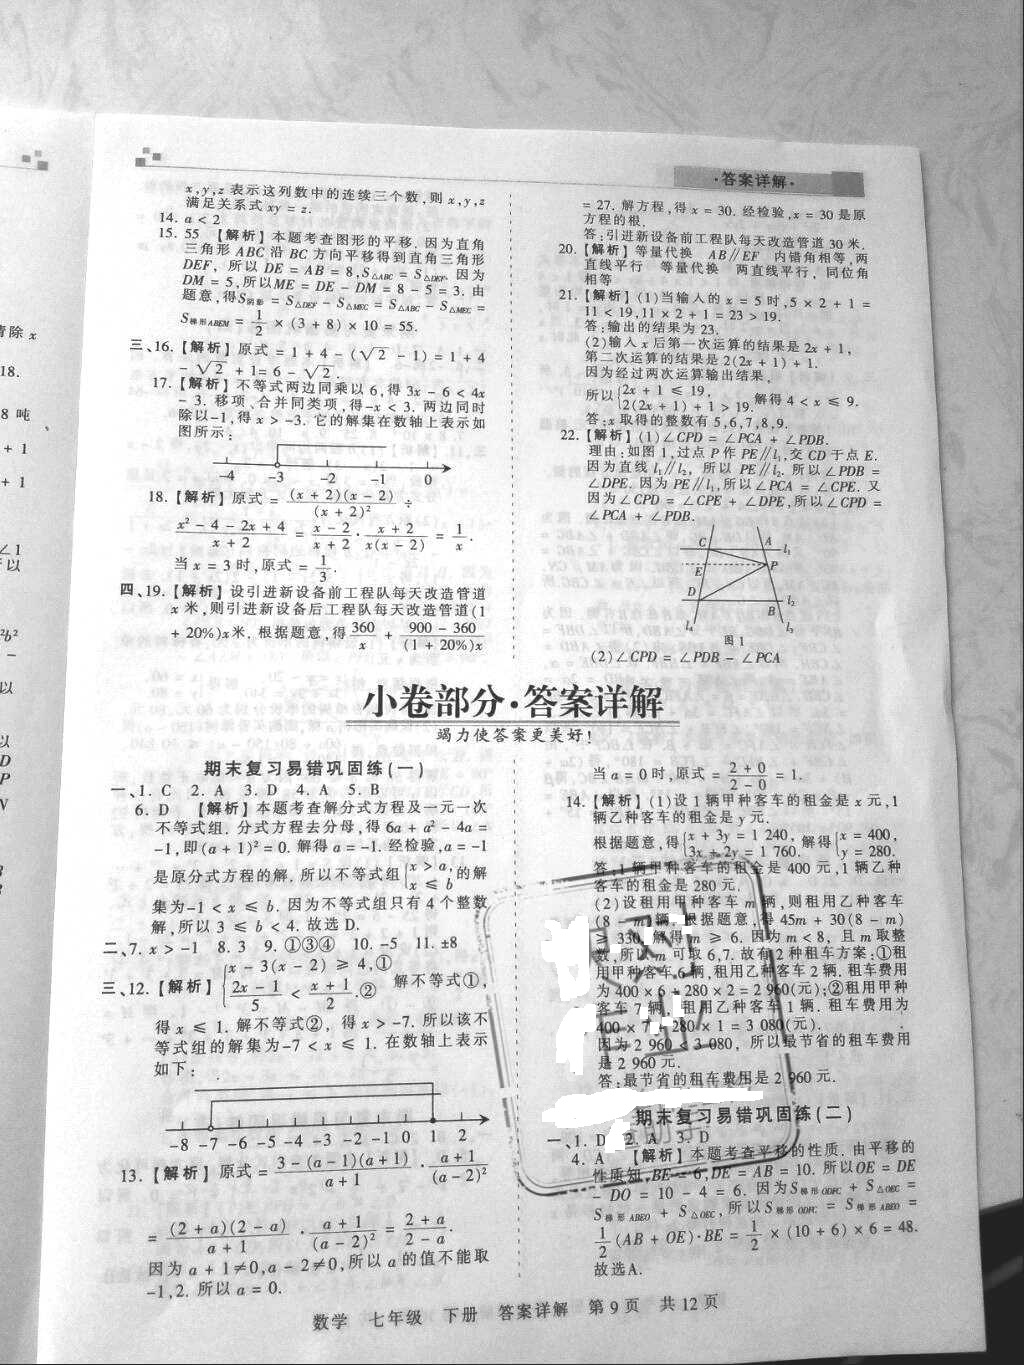 ·答案详解·
x,y,z 表示这列数中的连续三个数,则 x,y,z
满足关系式 xy = z.
14. a < 2
15. 55 【解析】本题考查图形的平移. 因为直角
三角形 ABC 沿 BC 方向平移得到直角三角形
DEF, 所以 DE = AB = 8,S△ABC = S△DEF. 因为
DM = 5,所以ME = DE - DM = 8 - 5 = 3. 由
题意,得S阴影 = S△DEF - S△MEC = S△ABC - S△MEC =
S梯形ABEM = 1/2 × (3 + 8) × 10 = 55.
三、16. 【解析】原式 = 1 + 4 - (√2 - 1) = 1 + 4
- √2 + 1 = 6 - √2.
17. 【解析】不等式两边同乘以 6,得 3x - 6 < 4x
- 3. 移项、合并同类项,得-x < 3. 两边同时
除以-1,得 x > -3. 它的解集在数轴上表示如
图所示:
-4 -3 -2 -1 0
18. 【解析】原式 = (x + 2)(x - 2)/(x + 2)² ÷
(x² - 4 - 2x + 4)/(x + 2) = (x - 2)/(x + 2) · (x + 2)/(x(x - 2)) = 1/x.
当 x = 3 时,原式 = 1/3.
四、19. 【解析】设引进新设备前工程队每天改造管道
x 米,则引进新设备后工程队每天改造管道(1
+ 20%)x米. 根据题意,得 360/x + (900 - 360)/((1 + 20%)x)
= 27. 解方程,得 x = 30. 经检验,x = 30 是原
方程的根.
答:引进新设备前工程队每天改造管道 30 米.
20. 【解析】等量代换 AB∥EF 内错角相等,两
直线平行 等量代换 两直线平行, 同位角
相等
21. 【解析】(1)当输入的 x = 5 时,5 × 2 + 1 =
11 < 19,11 × 2 + 1 = 23 > 19.
答:输出的结果为 23.
(2)输入 x 后第一次运算的结果是 2x + 1,
第二次运算的结果是 2(2x + 1) + 1.
因为经过两次运算输出结果,
所以 {2x + 1 ≤ 19, 2(2x + 1) + 1 > 19. 解得 4 < x ≤ 9.
答:x 取得的整数有 5,6,7,8,9.
22. 【解析】(1)∠CPD = ∠PCA + ∠PDB.
理由:如图 1,过点 P 作 PE∥l₁,交 CD 于点 E.
因为直线 l₁∥l₂, 所以 PE∥l₂. 所以∠PDB =
∠DPE. 因为 PE∥l₁,所以∠PCA = ∠CPE. 又
因为∠CPD = ∠CPE + ∠DPE,所以∠CPD =
∠PCA + ∠PDB.
C A l₁
E P
D B l₂
l₄ l₃
图 1
(2)∠CPD = ∠PDB - ∠PCA
小卷部分·答案详解
竭力使答案更美好!
期末复习易错巩固练(一)
一、1. C 2. A 3. D 4. A 5. B
6. D 【解析】本题考查解分式方程及一元一次
不等式组. 分式方程去分母,得 6a + a² - 4a =
-1,即(a + 1)² = 0. 解得 a = -1. 经检验,a = -1
是原分式方程的解. 所以不等式组 {x > a, x ≤ b 的解
集为-1 < x ≤ b. 因为不等式组只有 4 个整数
解,所以 3 ≤ b < 4. 故选 D.
二、7. x > -1 8. 3 9. ①③④ 10. -5 11. ±8
三、12. 【解析】 {x - 3(x - 2) ≥ 4,① (2x - 1)/5 < (x + 1)/2.② 解不等式①,
得 x ≤ 1. 解不等式②, 得 x > -7. 所以该不
等式组的解集为-7 < x ≤ 1. 在数轴上表示
如下:
-8 -7 -6 -5 -4 -3 -2 -1 0 1 2
13. 【解析】原式 = (3 - (a - 1)(a + 1))/(a + 1) · (a + 1)/(a - 2)²
= ((2 + a)(2 - a))/(a + 1) · (a + 1)/(a - 2)² = (2 + a)/(2 - a).
因为 a + 1≠0,a - 2≠0,所以 a 的值不能取
-1,2. 所以 a = 0.
当 a = 0 时,原式 = (2 + 0)/(2 - 0) = 1.
14. 【解析】(1)设 1 辆甲种客车的租金是 x 元,1
辆乙种客车的租金是 y 元.
根据题意,得 {x + 3y = 1 240, 3x + 2y = 1 760. 解得 {x = 400, y = 280.
答:1 辆甲种客车的租金是 400 元,1 辆乙种
客车的租金是 280 元.
(2)设租用甲种客车 m 辆,则租用乙种客车
(8 - m)辆. 根据题意,得 45m + 30(8 - m)
≥ 330. 解得 m ≥ 6. 因为 m < 8, 且 m 取整
数,所以 m 可取 6,7. 故有 2 种租车方案:①租
用甲种客车 6 辆,租用乙种客车 2 辆. 租车费用
为 400 × 6 + 280 × 2 = 2 960(元);②租用甲种
客车 7 辆, 租用乙种客车 1 辆. 租车费用为
400 × 7 + 280 × 1 = 3 080(元).
因为 2 960 < 3 080, 所以最节省的租车费用
是 2 960 元.
答:最节省的租车费用是 2 960 元.
期末复习易错巩固练(二)
一、1. D 2. A 3. D
4. A 【解析】本题考查平移的性质. 由平移的
性质知,BE = 6,DE = AB = 10. 所以OE = DE
- DO = 10 - 4 = 6. 因为S梯形ODFC + S△OEC =
S梯形ABEO + S△OEC,所以S梯形ODFC = S梯形ABEO =
1/2 (AB + OE)·BE = 1/2 × (10 + 6) × 6 = 48.
故选A.
数学 七年级 下册 答案详解 第 9 页 共 12 页